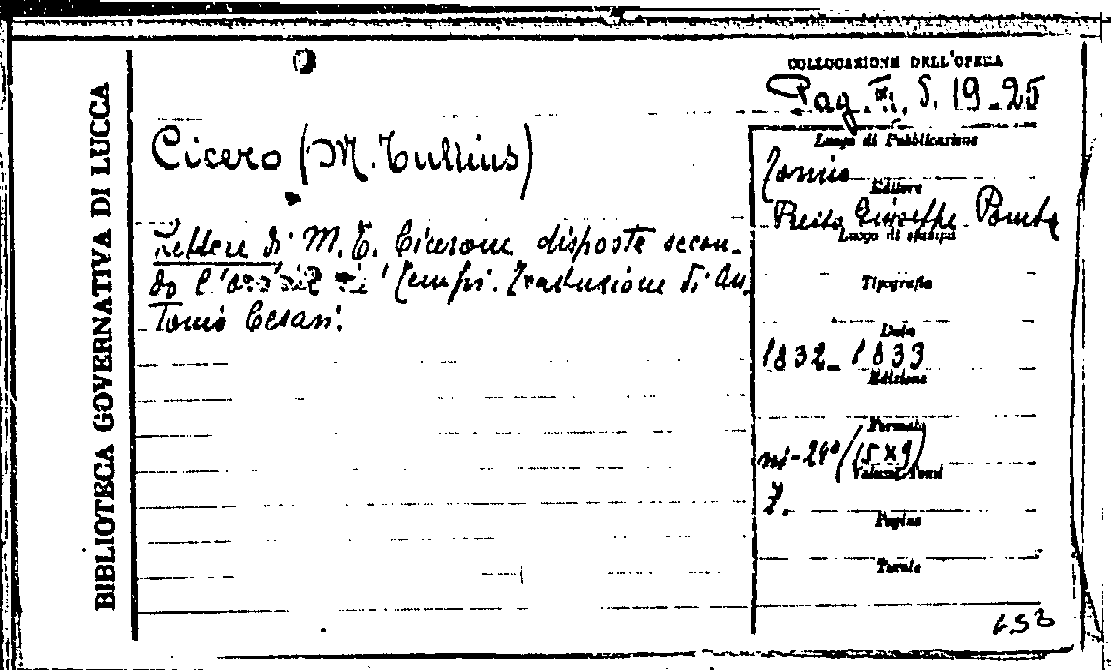 BIBLIOTECA GOVERNATIVA DI LUCCA
COLLOCAZIONE DELL'OPERA
Pag. II. S. 19-25
Cicero (M. Tullius)
Lettere di M. T. Cicerone disposte secon-
do l'ordine de' tempi. Traduzione di An
tonio Cesari.
Luogo di Pubblicazione
Torino
Editore
Presso Giuseppe Pomba
Luogo di stampa
Tipografia
Data
1832-1833
Edizione
Formato
in-24° (15x9)
Volumi, Tomi
7.
Pagine
Tavole